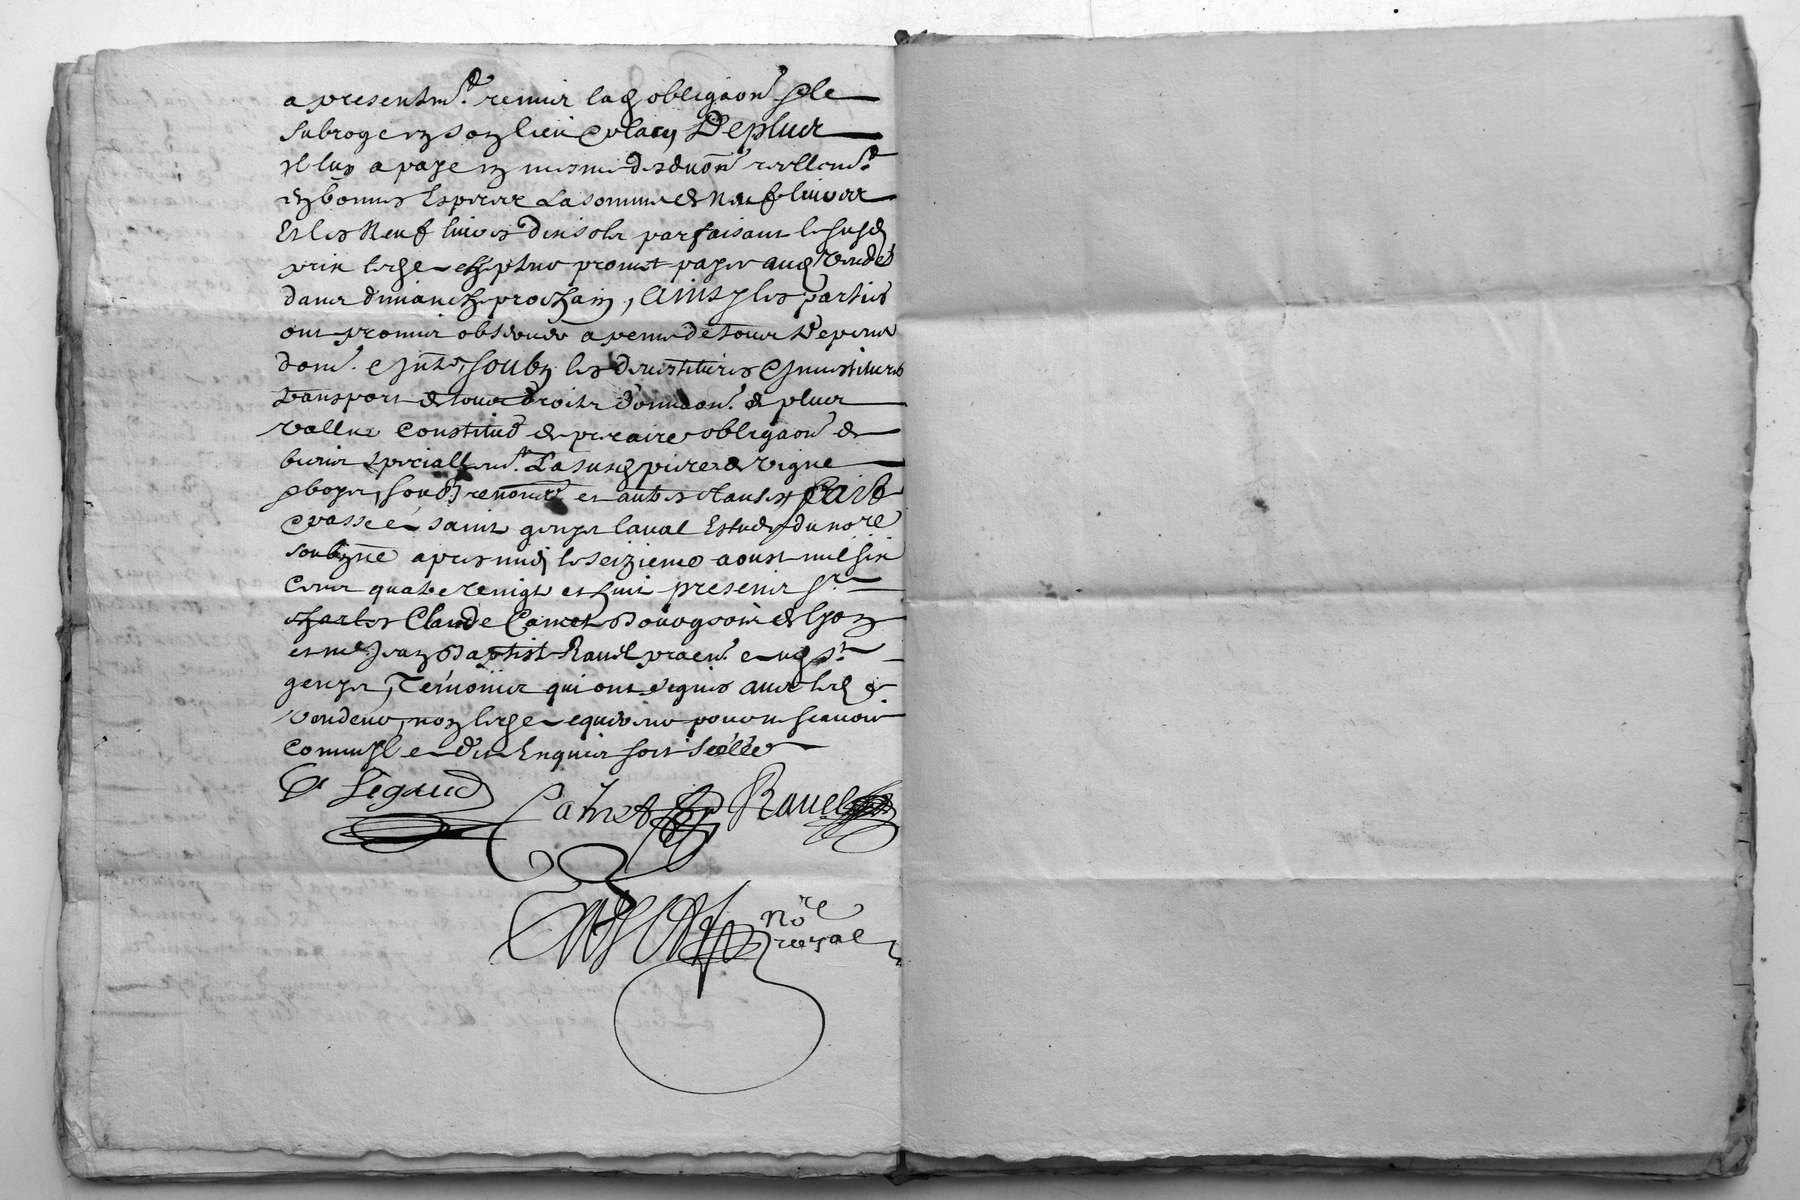 a presentem.t remis lad obligaon et le
subroge en son lieu et place, De plus
Il luy a paye en mesme deduon reellem.t
en bonnes Especes La somme de Neuf livres
Et les Neuf livres dix sols parfaisant le susd
prix led achepteur promet payer aud vendeur
dans dimanche prochain, Ainsy les parties
ont promis observer a peine de tous Depens
dom. et Intz, soubz les devestitures et Investitures
transport de tous droits donnaon. de plus
vallue Constitud de precaire obligaon de
biens speciallem.t La susd piece de vigne
soub renonc et autres clauses, faict
et passe a saint genys laval Estude du nore
soubzne apres midy le seizieme aoust mil six
cens quatre vingts et huit presens sr
charles Claude Camet Bourgeois de Lyon
et me Jean Baptiste Ravel procur. aud st
genys, Temoins qui ont signes avec led
vendeur, non led acquereur pour ne scavoir
comme Il a dit Enquis soit scellé
Legaud Camet Ravel
nore
royal